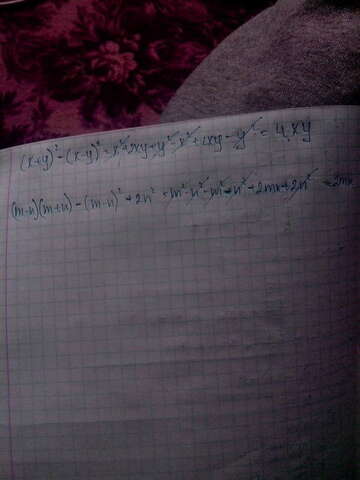 (x+y)² - (x-y)² = x² + 2xy + y² - x² + 2xy - y² = 4xy
(m-n)(m+n) - (m-n)² + 2n² = m² - n² - m² - n² + 2mn + 2n² = 2mn